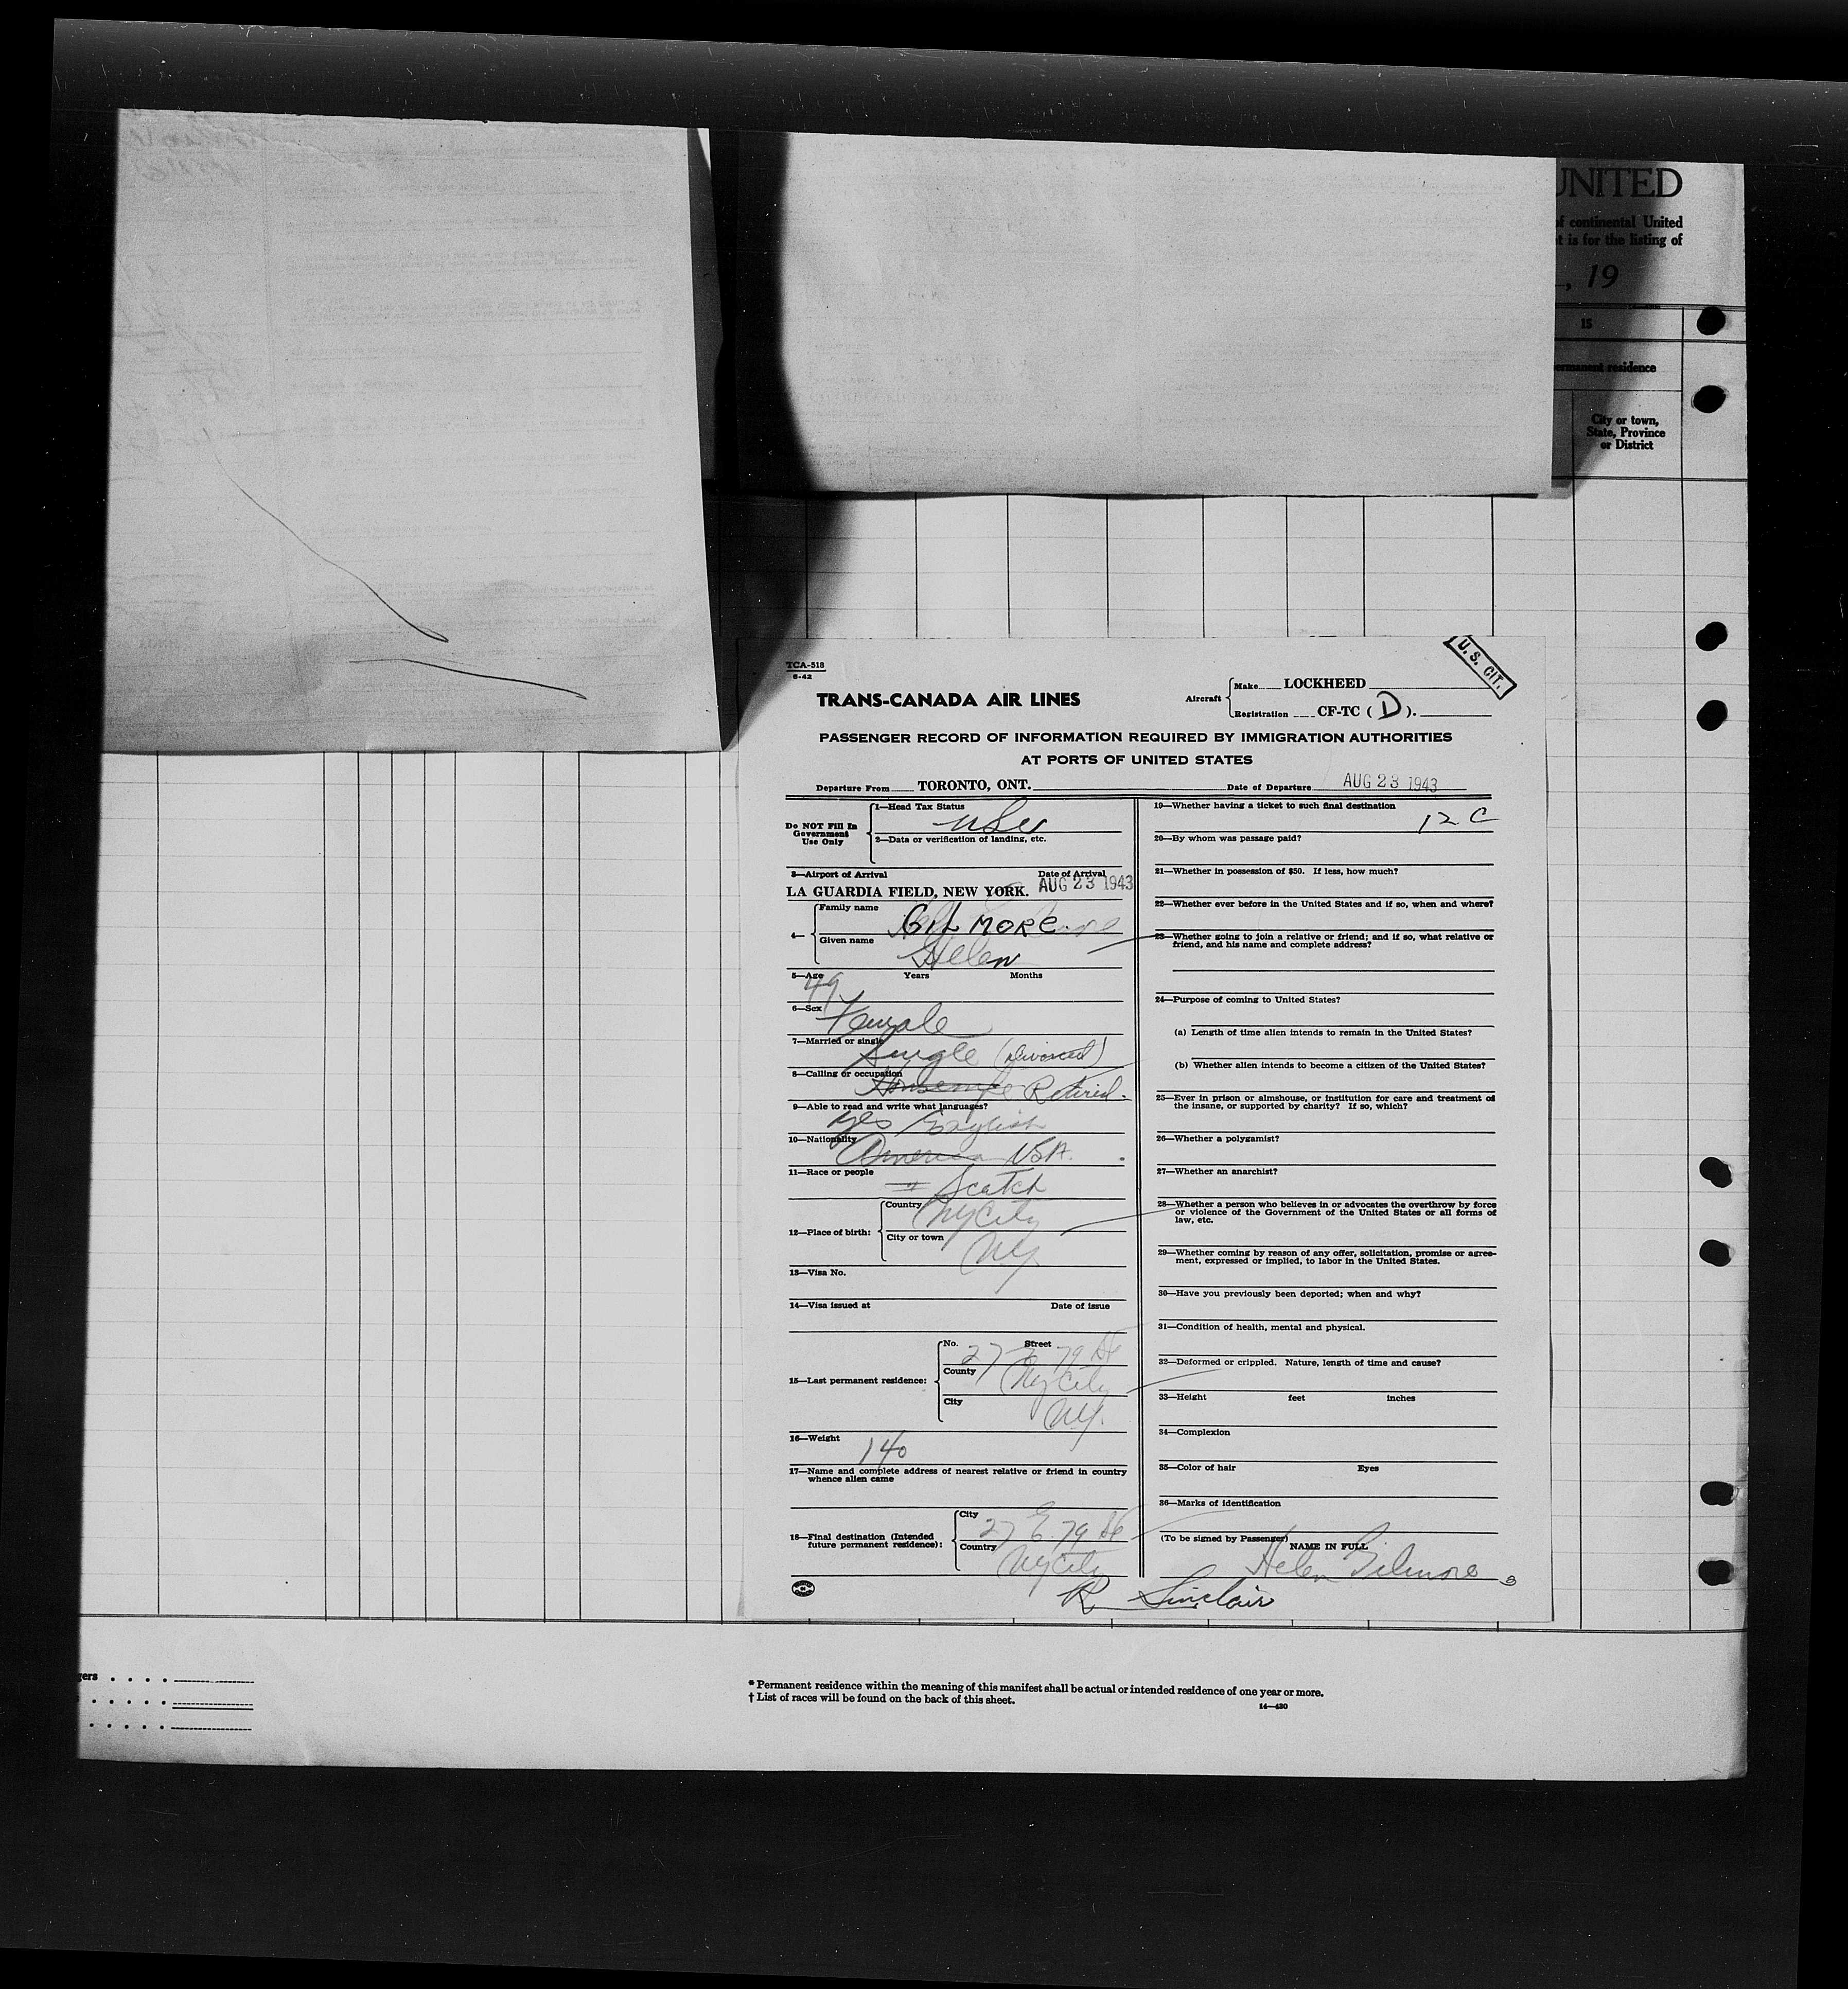 UNITED
of continental United
t is for the listing of
, 19
15
ermanent residence
City or town,
State, Province
or District
TCA-518
6-42
U. S. CIT.
TRANS-CANADA AIR LINES
Aircraft
Make LOCKHEED
Registration CF-TC ( D ).
PASSENGER RECORD OF INFORMATION REQUIRED BY IMMIGRATION AUTHORITIES
AT PORTS OF UNITED STATES
Departure From TORONTO, ONT. Date of Departure AUG 23 1943
Do NOT Fill In
Government
Use Only
1—Head Tax Status
2—Data or verification of landing, etc.
3—Airport of Arrival Date of Arrival
LA GUARDIA FIELD, NEW YORK. AUG 23 1943
4—
Family name GILMORE
Given name Helen
5—Age 49 Years Months
6—Sex Female
7—Married or single Single (divorced)
8—Calling or occupation Housewife Retired.
9—Able to read and write what languages? Yes English
10—Nationality America USA.
11—Race or people Scotch
12—Place of birth:
Country NyCity
City or town NY.
13—Visa No.
14—Visa issued at Date of issue
15—Last permanent residence:
No. Street 27 E 79 St
County NyCity
City NY.
16—Weight 140
17—Name and complete address of nearest relative or friend in country
whence alien came
18—Final destination (Intended
future permanent residence):
City 27 E. 79 St
Country NyCity
19—Whether having a ticket to such final destination
12 C
20—By whom was passage paid?
21—Whether in possession of $50. If less, how much?
22—Whether ever before in the United States and if so, when and where?
23—Whether going to join a relative or friend; and if so, what relative or
friend, and his name and complete address?
24—Purpose of coming to United States?
(a) Length of time alien intends to remain in the United States?
(b) Whether alien intends to become a citizen of the United States?
25—Ever in prison or almshouse, or institution for care and treatment of
the insane, or supported by charity? If so, which?
26—Whether a polygamist?
27—Whether an anarchist?
28—Whether a person who believes in or advocates the overthrow by force
or violence of the Government of the United States or all forms of
law, etc.
29—Whether coming by reason of any offer, solicitation, promise or agree-
ment, expressed or implied, to labor in the United States.
30—Have you previously been deported; when and why?
31—Condition of health, mental and physical.
32—Deformed or crippled. Nature, length of time and cause?
33—Height feet inches
34—Complexion
35—Color of hair Eyes
36—Marks of identification
(To be signed by Passenger) NAME IN FULL
Helen Gilmore
R Sinclair
gers
* Permanent residence within the meaning of this manifest shall be actual or intended residence of one year or more.
† List of races will be found on the back of this sheet.
14—430